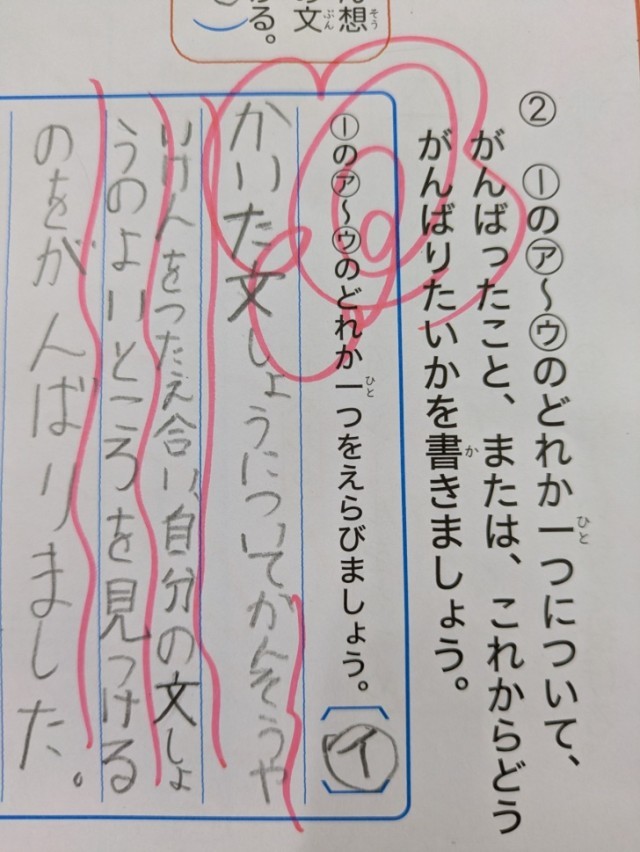 ② ①のア〜ウのどれか一つについて、
がんばったこと、または、これからどう
がんばりたいかを書きましょう。
①のア〜ウのどれか一つをえらびましょう。
イ
かいた文しょうについてがんそうや
いけんをつたえ合い、自分の文しょ
うのよいところを見つける
のをがんばりました。
ん想
の文
る。